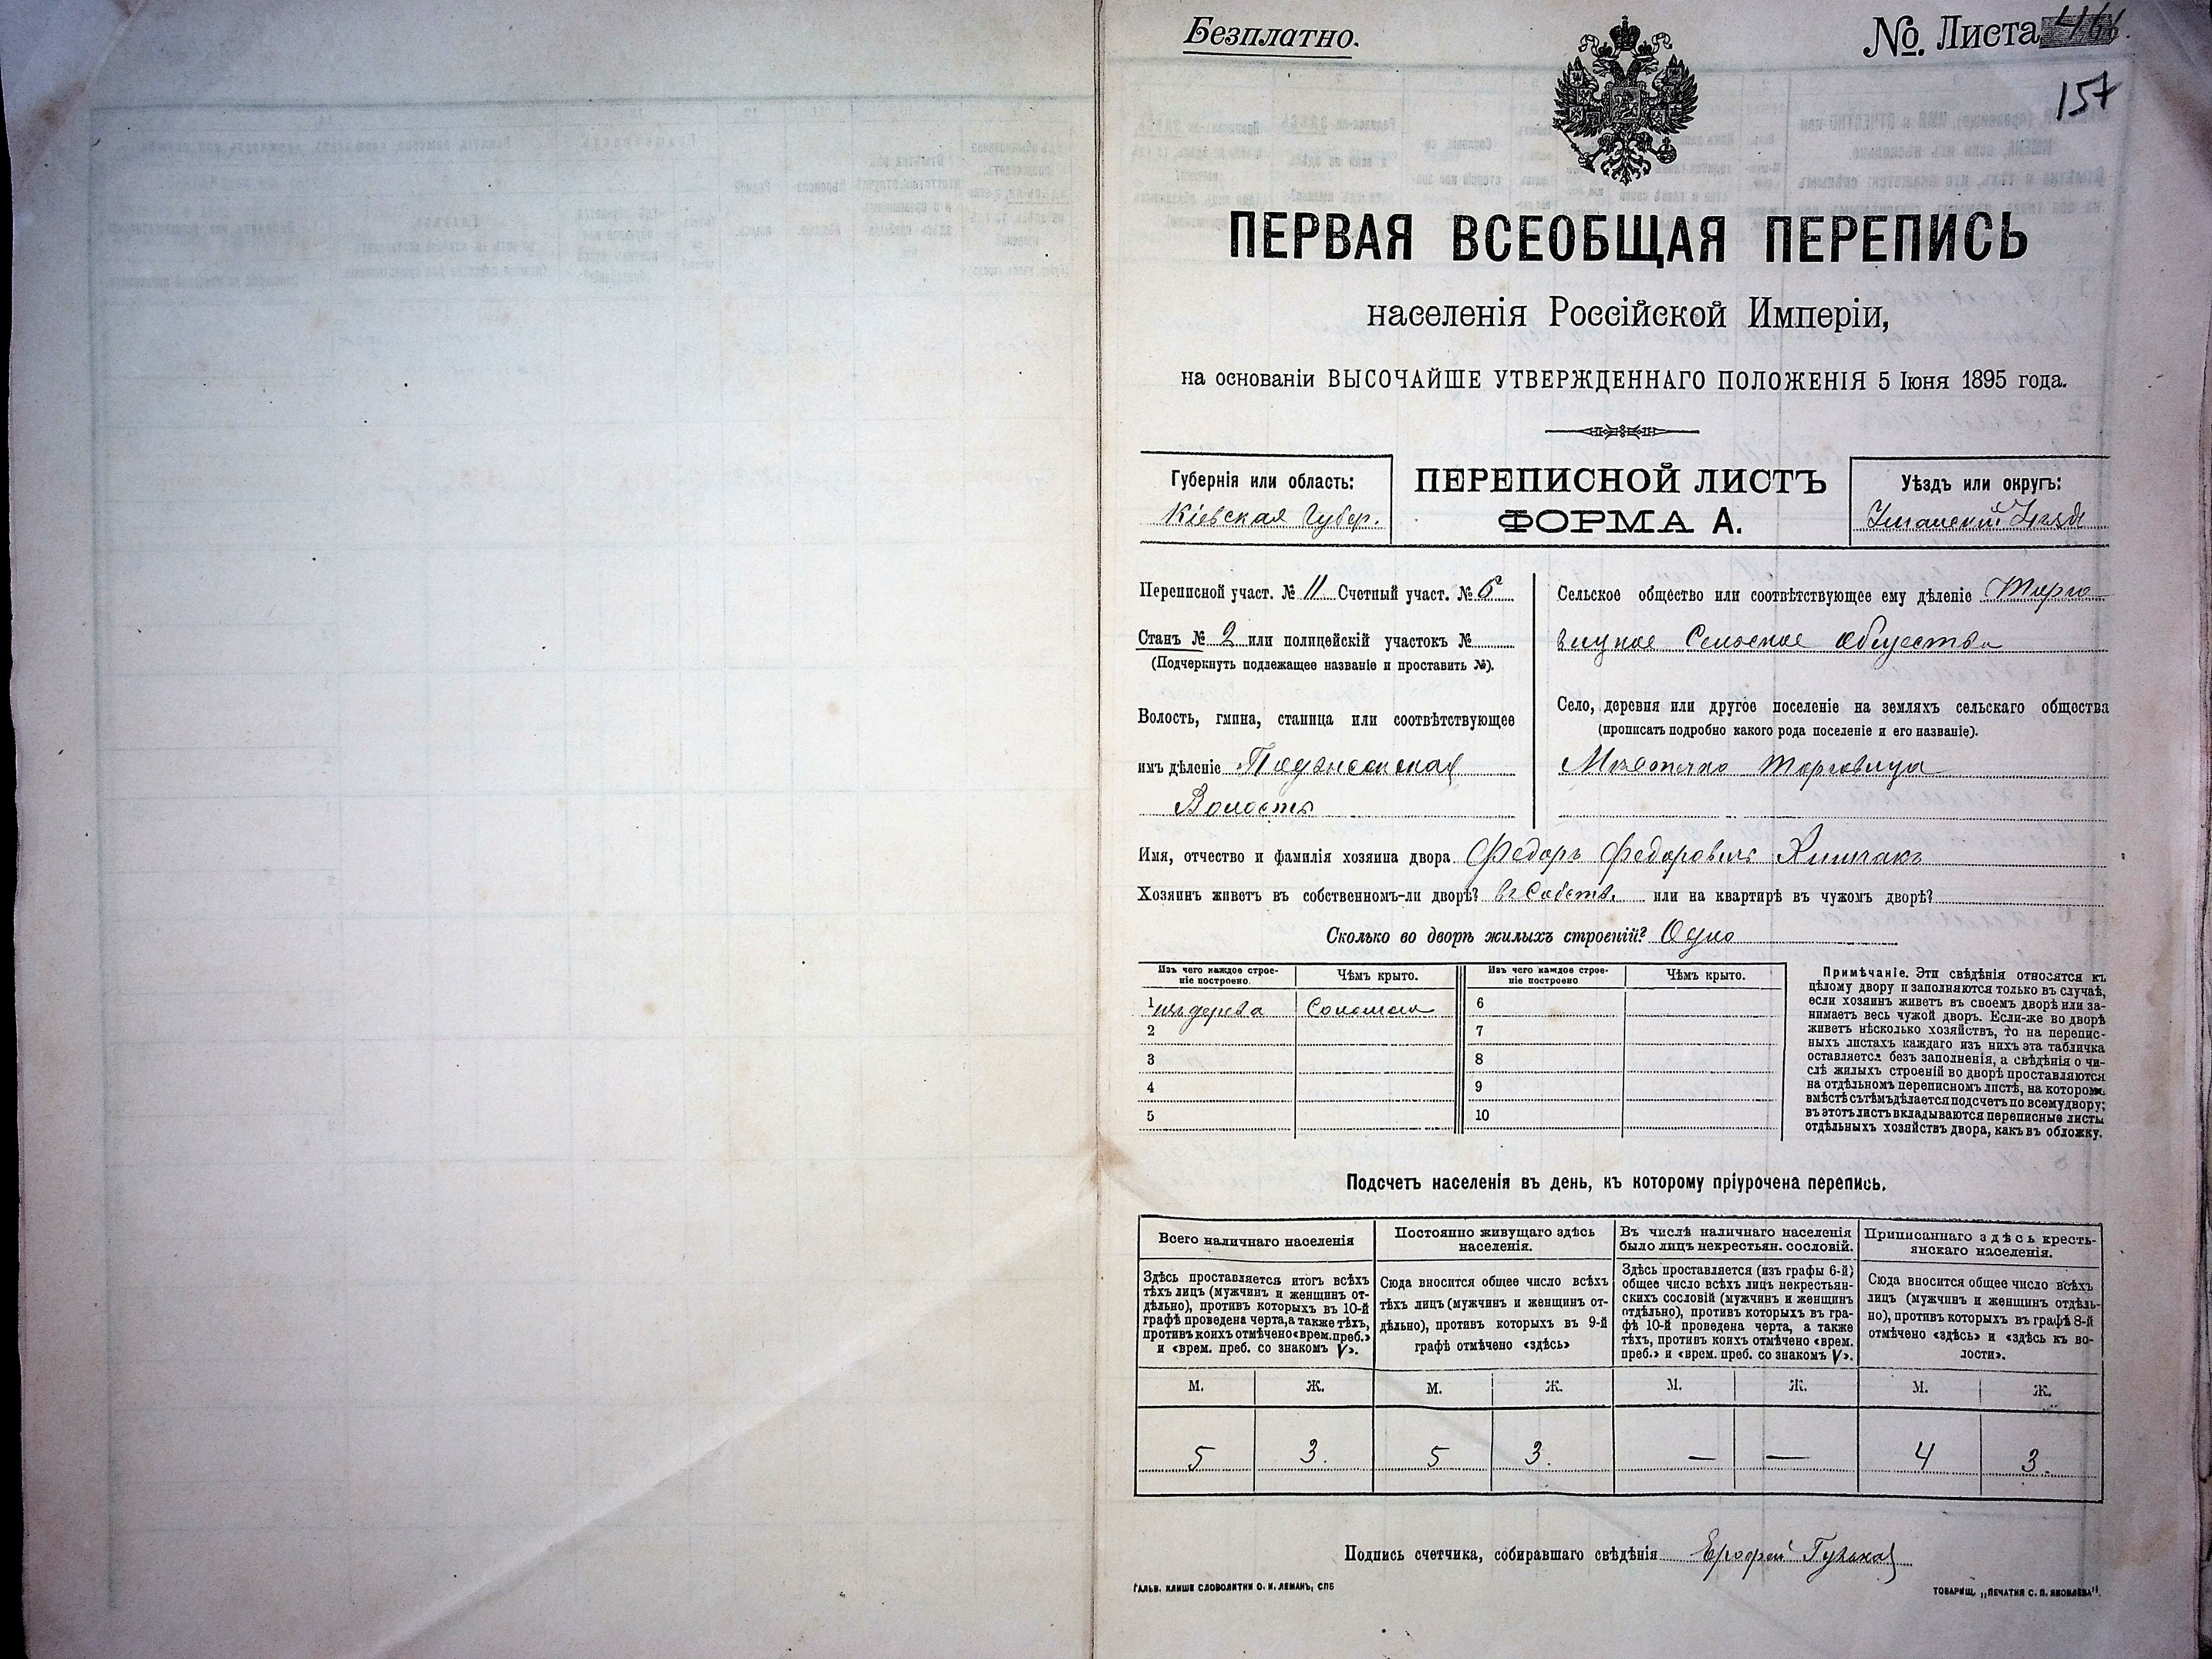 Безплатно.
№ Листа 466.
157
ПЕРВАЯ ВСЕОБЩАЯ ПЕРЕПИСЬ
населенія Россійской Имперіи,
на основаніи ВЫСОЧАЙШЕ УТВЕРЖДЕННАГО ПОЛОЖЕНІЯ 5 Іюня 1895 года.
Губернія или область:
Кіевская Губер.
ПЕРЕПИСНОЙ ЛИСТЪ
ФОРМА А.
Уѣздъ или округъ:
Уманскій Уѣздъ
Переписной участ. № 11 Счетный участ. № 6
Станъ № 2 или полицейскій участокъ №
(Подчеркнуть подлежащее названіе и проставить №).
Волость, гмина, станица или соотвѣтствующее
имъ дѣленіе
Волость
Сельское общество или соотвѣтствующее ему дѣленіе Торго-
вицкое Сельское общество
Село, деревня или другое поселеніе на земляхъ сельскаго общества
(прописать подробно какого рода поселеніе и его названіе).
Мѣстечко Торговица
Имя, отчество и фамилія хозяина двора Федоръ Федоровичъ
Хозяинъ живетъ въ собственномъ-ли дворѣ? въ Собств. или на квартирѣ въ чужомъ дворѣ?
Сколько во дворѣ жилыхъ строеній? Одно
Изъ чего каждое строе-
ніе построено.
Чѣмъ крыто.
Изъ чего каждое строе-
ніе построено
Чѣмъ крыто.
1 изъ дерева Соломою 6
2 7
3 8
4 9
5 10
Примѣчаніе. Эти свѣдѣнія относятся къ
цѣлому двору и заполняются только въ случаѣ,
если хозяинъ живетъ въ своемъ дворѣ или за-
нимаетъ весь чужой дворъ. Если-же во дворѣ
живетъ нѣсколько хозяйствъ, то на перепис-
ныхъ листахъ каждаго изъ нихъ эта табличка
оставляется безъ заполненія, а свѣдѣнія о чи-
слѣ жилыхъ строеній во дворѣ проставляются
на отдѣльномъ переписномъ листѣ, на которомъ
вмѣстѣ съ тѣмъ дѣлается подсчетъ по всему двору;
въ этотъ листъ вкладываются переписные листы
отдѣльныхъ хозяйствъ двора, какъ въ обложку.
Подсчетъ населенія въ день, къ которому пріурочена перепись.
Всего наличнаго населенія
Здѣсь проставляется итогъ всѣхъ
тѣхъ лицъ (мужчинъ и женщинъ от-
дѣльно), противъ которыхъ въ 10-й
графѣ проведена черта, а также тѣхъ,
противъ коихъ отмѣчено «врем. преб.»
и «врем. преб. со знакомъ V».
Постоянно живущаго здѣсь
населенія.
Сюда вносится общее число всѣхъ
тѣхъ лицъ (мужчинъ и женщинъ от-
дѣльно), противъ которыхъ въ 9-й
графѣ отмѣчено «здѣсь»
Въ числѣ наличнаго населенія
было лицъ некрестьян. сословій.
Здѣсь проставляется (изъ графы 6-й)
общее число всѣхъ лицъ некрестьян-
скихъ сословій (мужчинъ и женщинъ
отдѣльно), противъ которыхъ въ гра-
фѣ 10-й проведена черта, а также
тѣхъ, противъ коихъ отмѣчено «врем.
преб.» и «врем. преб. со знакомъ V».
Приписаннаго здѣсь кресть-
янскаго населенія.
Сюда вносится общее число всѣхъ
лицъ (мужчинъ и женщинъ отдѣль-
но), противъ которыхъ въ графѣ 8-й
отмѣчено «здѣсь» и «здѣсь къ во-
лости».
М. Ж. М. Ж. М. Ж. М. Ж.
5 3. 5 3. — — 4 3.
Подпись счетчика, собиравшаго свѣдѣнія Ерофей
ГАЛЬВ. КЛИШЕ СЛОВОЛИТНИ О. И. ЛЕМАНЪ, СПБ
ТОВАРИЩ. „ПЕЧАТНЯ С. П. ЯКОВЛЕВА“.